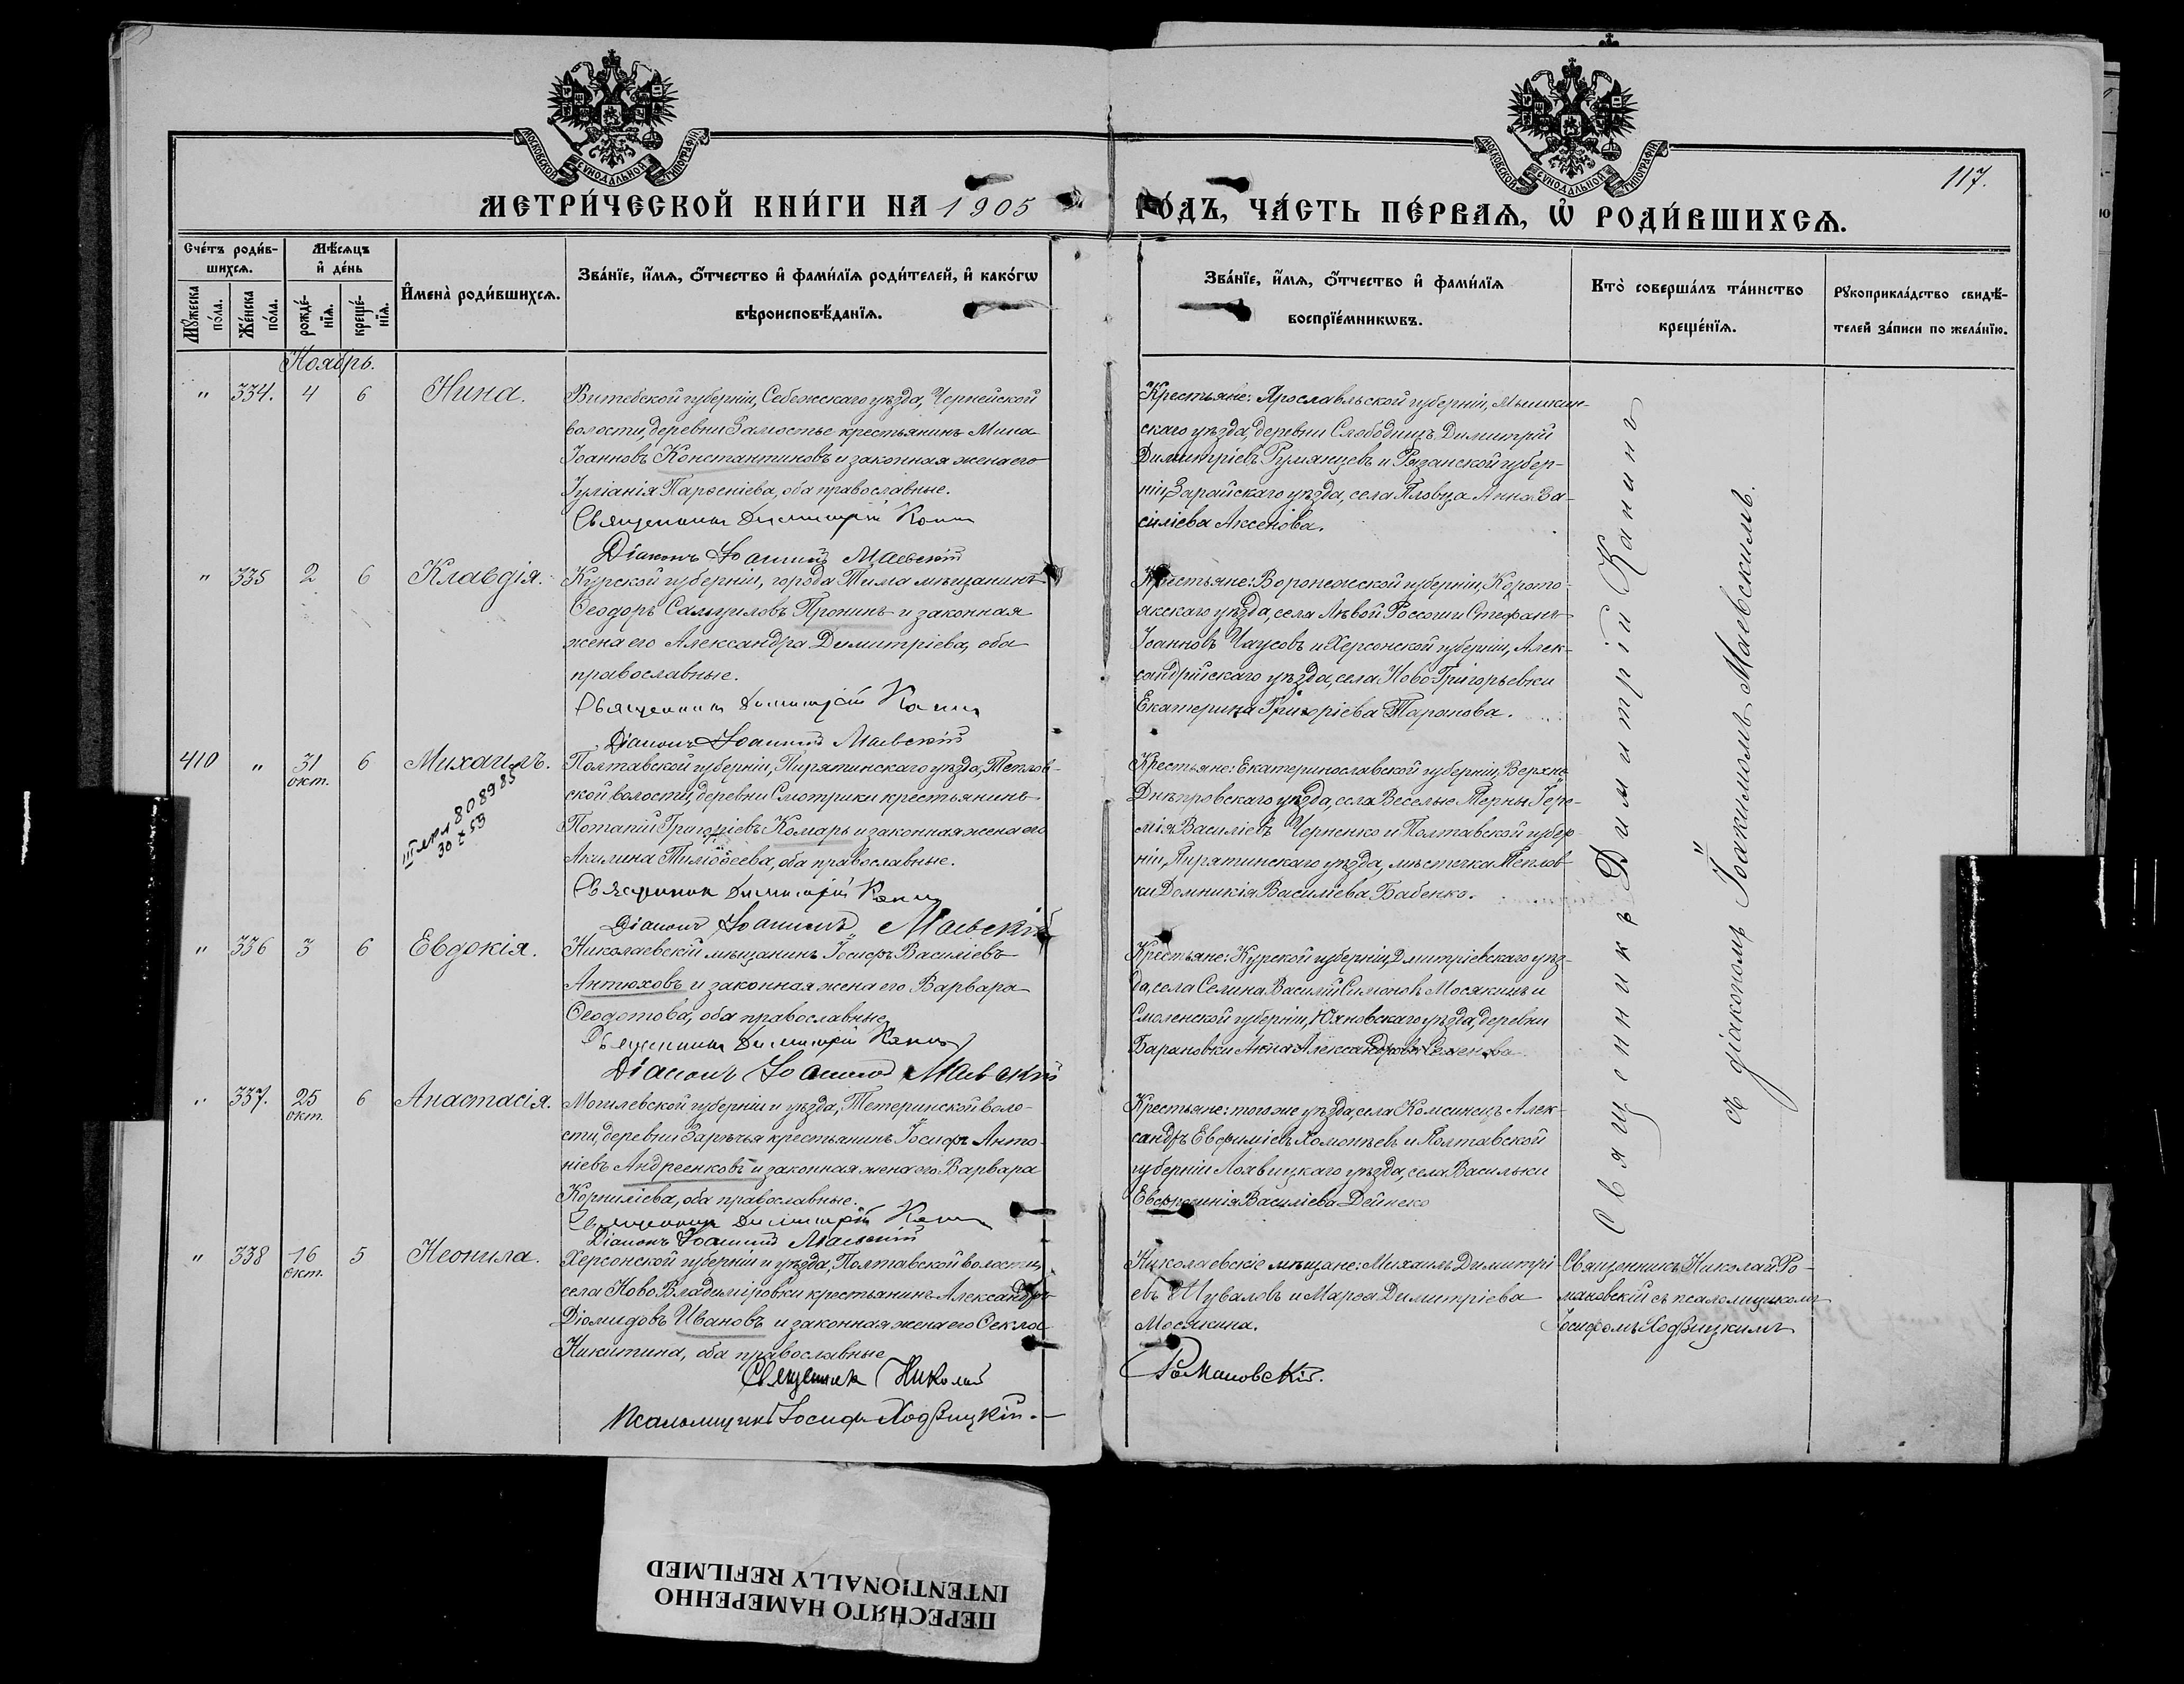 МОСКОВСКОЙ СѴНОДАЛЬНОЙ ТИПОГРАФІИ
МОСКОВСКОЙ СѴНОДАЛЬНОЙ ТИПОГРАФІИ
117.
МЕТРИ́ЧЕСКОЙ КНИ́ГИ НА 1905 ГО́ДЪ, ЧА́СТЬ ПЕ́РВАѦ, Ѽ РОДИ́ВШИХСѦ.
Сче́тъ роди́в-
шихсѧ.
Мѣ́сѧцъ
и҆ де́нь
Мꙋ́жеска
по́ла.
Же́нска
по́ла.
рожде́-
нїѧ.
креще́-
нїѧ.
И҆мена̀ роди́вшихсѧ.
Зва́нїе, и҆́мѧ, ѻ҆́тчество и҆ фами́лїѧ роди́телей, и҆ како́гѡ
вѣроисповѣ́данїѧ.
Зва́нїе, и҆́мѧ, ѻ҆́тчество и҆ фами́лїѧ
воспрїе́мникѡвъ.
Кто̀ соверша́лъ та́инство
креще́нїѧ.
Рꙋкоприкла́дство свидѣ́-
телей за́писи по жела́нїю.
Ноябрь.
" 334. 4 6 Нина.
Витебской губерніи, Себежскаго уѣзда, Чернейской
волости, деревни Замостье крестьянинъ Мина
Іоанновъ Константиновъ и законная жена его
Іуліанія Парѳеніева, оба православные.
Священникъ Димитрій Канинъ
Діаконъ Іоакимъ Маевскій
Крестьяне: Ярославльской губерніи, Мышкин-
скаго уѣзда, деревни Слободищъ Димитрій
Димитріевъ Румянцевъ и Рязанской губер-
ніи, Зарайскаго уѣзда, села Пловца Анна Ва-
силіева Аксенова.
" 335 2 6 Клавдія.
Курской губерніи, города Тима мѣщанинъ
Ѳеодоръ Самуиловъ Пронинъ и законная
жена его Александра Димитріева, оба
православные.
Священникъ Димитрій Канинъ
Діаконъ Іоакимъ Маевскій
Крестьяне: Воронежской губерніи, Корото-
якскаго уѣзда, села Лѣвой Россоши Стефанъ
Іоанновъ Чаусовъ и Херсонской губерніи, Алек-
сандрійскаго уѣзда, села Ново Григорьевки
Екатерина Григоріева Таранова.
410 " 31 окт. 6 Михаилъ.
III ЕЯ 808985
30 I 53
Полтавской губерніи, Пирятинскаго уѣзда, Теплов-
ской волости, деревни Смотрики крестьянинъ
Потапій Григоріевъ Комаръ и законная жена его
Акилина Тимоѳеева, оба православные.
Священникъ Димитрій Канинъ
Діаконъ Іоакимъ Маевскій
Крестьяне: Екатеринославской губерніи, Верхне
Днѣпровскаго уѣзда, села Веселые Терны Іере-
мія Василіевъ Черненко и Полтавской губер-
ніи, Пирятинскаго уѣзда, мѣстечка Теплов-
ки Домникія Василіева Бабенко.
" 336 3 6 Евдокія.
Николаевскій мѣщанинъ Іосифъ Василіевъ
Антюховъ и законная жена его Варвара
Ѳеодотова, оба православные
Священникъ Димитрій Канинъ
Діаконъ Іоакимъ Маевскій
Крестьяне: Курской губерніи, Дмитріевскаго уѣз-
да, села Селина Василій Симоновъ Мосякинъ и
Смоленской губерніи, Юхновскаго уѣзда, деревни
Барановки Анна Александрова Семенова
" 337. 25 окт. 6 Анастасія.
Могилевской губерніи и уѣзда, Тетеринской воло-
сти, деревни Зарѣчья крестьянинъ Іосифъ Анто-
ніевъ Андреенковъ и законная жена его Варвара
Корниліева, оба православные.
Священникъ Димитрій Канинъ
Діаконъ Іоакимъ Маевскій
Крестьяне: того же уѣзда, села Комсинецъ Алек-
сандръ Евфиміевъ Хомоньевъ и Полтавской
губерніи Лохвицкаго уѣзда, села Васильки
Евфросинія Василіева Дейнеко
Священникъ Димитрій Канинъ
съ діакономъ Іоакимомъ Маевскимъ.
" 338 16 окт. 5 Неонила.
Херсонской губерніи и уѣзда, Полтавской волости,
села Ново Владиміровки крестьянинъ Александръ
Діомидовъ Ивановъ и законная жена его Ѳекла
Никитина, оба православные
Священникъ Николай Романовскій.
Псаломщикъ Іосифъ Ходзицкій.
Николаевскіе мѣщане: Михаилъ Димитрі-
евъ Шуваловъ и Марѳа Димитріева
Мосякина.
Священникъ Николай Ро-
мановскій съ псаломщикомъ
Іосифомъ Ходзицкимъ
ПЕРЕСНЯТО НАМЕРЕННО
INTENTIONALLY REFILMED